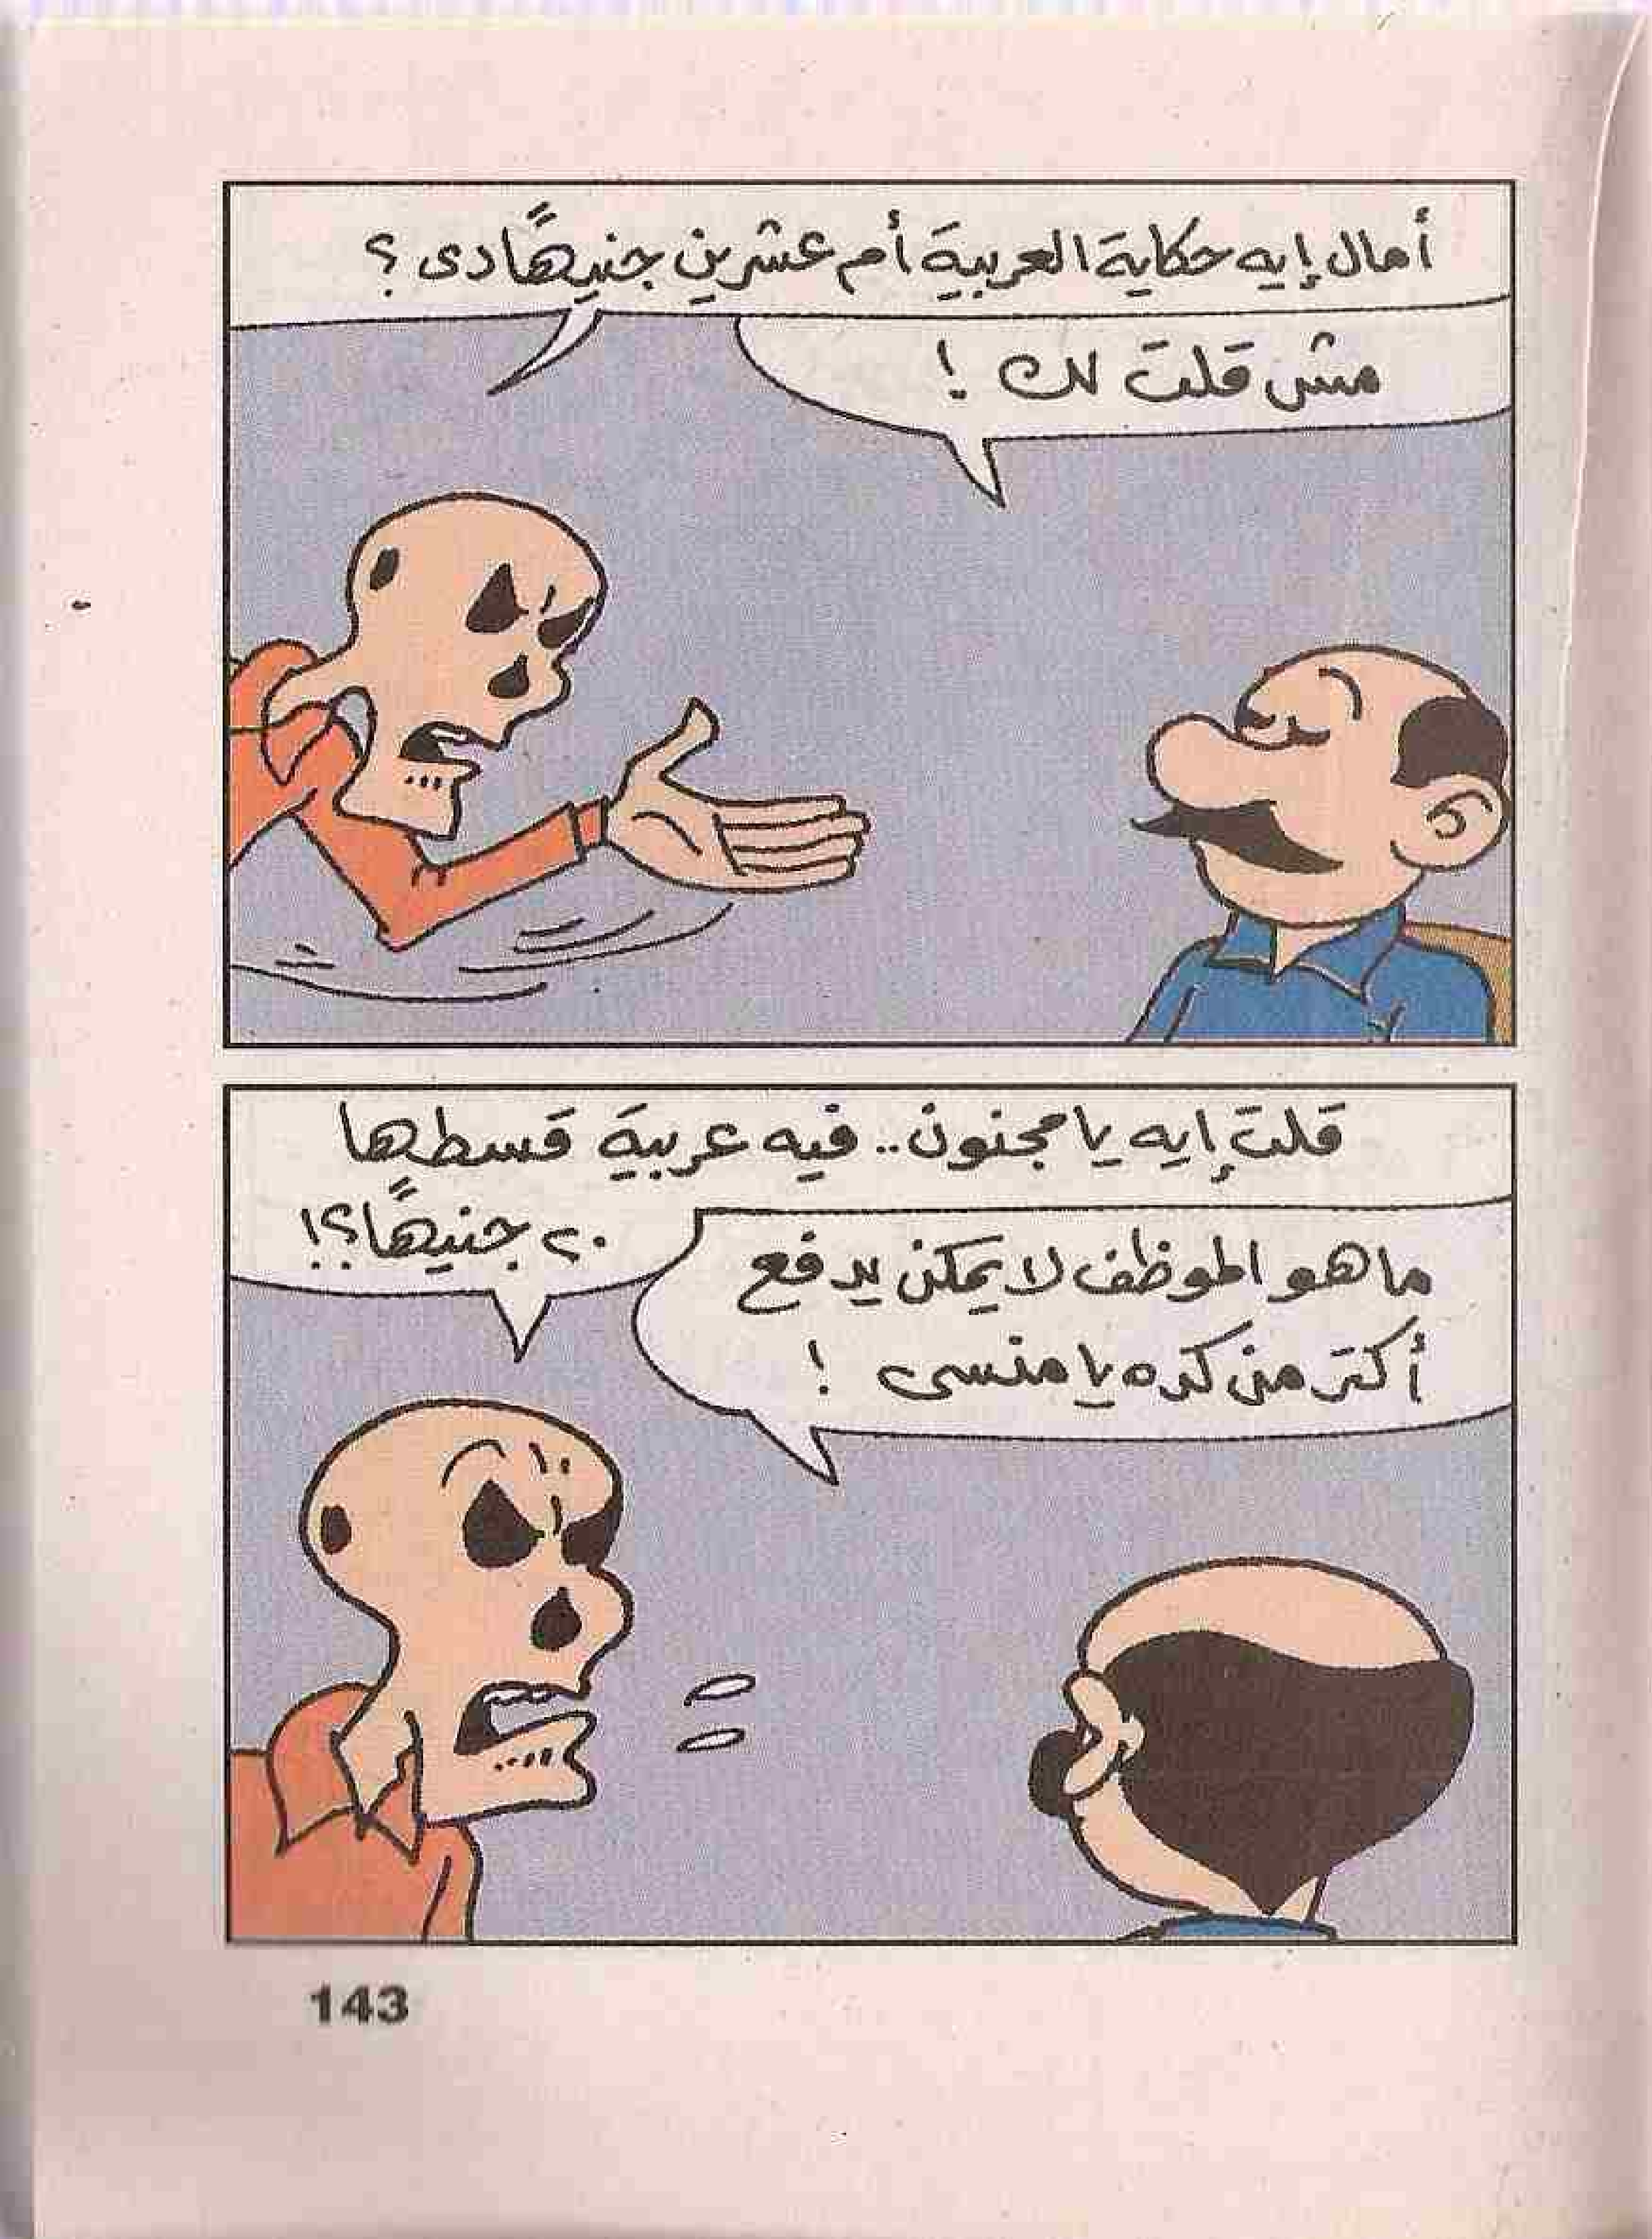 أمال إيه حكاية العربية أم عشرين جنيهًا دى ؟
مش قلت لك !
قلت إيه يا مجنون.. فيه عربية قسطها
٢٠ جنيهًا؟!
ما هو الموظف لا يمكن يدفع
أكتر من كده يا منسى !
143